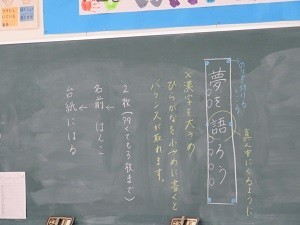 真ん中にくるように
夢を語ろう
※漢字を大きめ
ひらがなを小さめに書くと
バランスが取れます。
2枚(多くても3枚まで)
名前 はんこ
台紙にはる